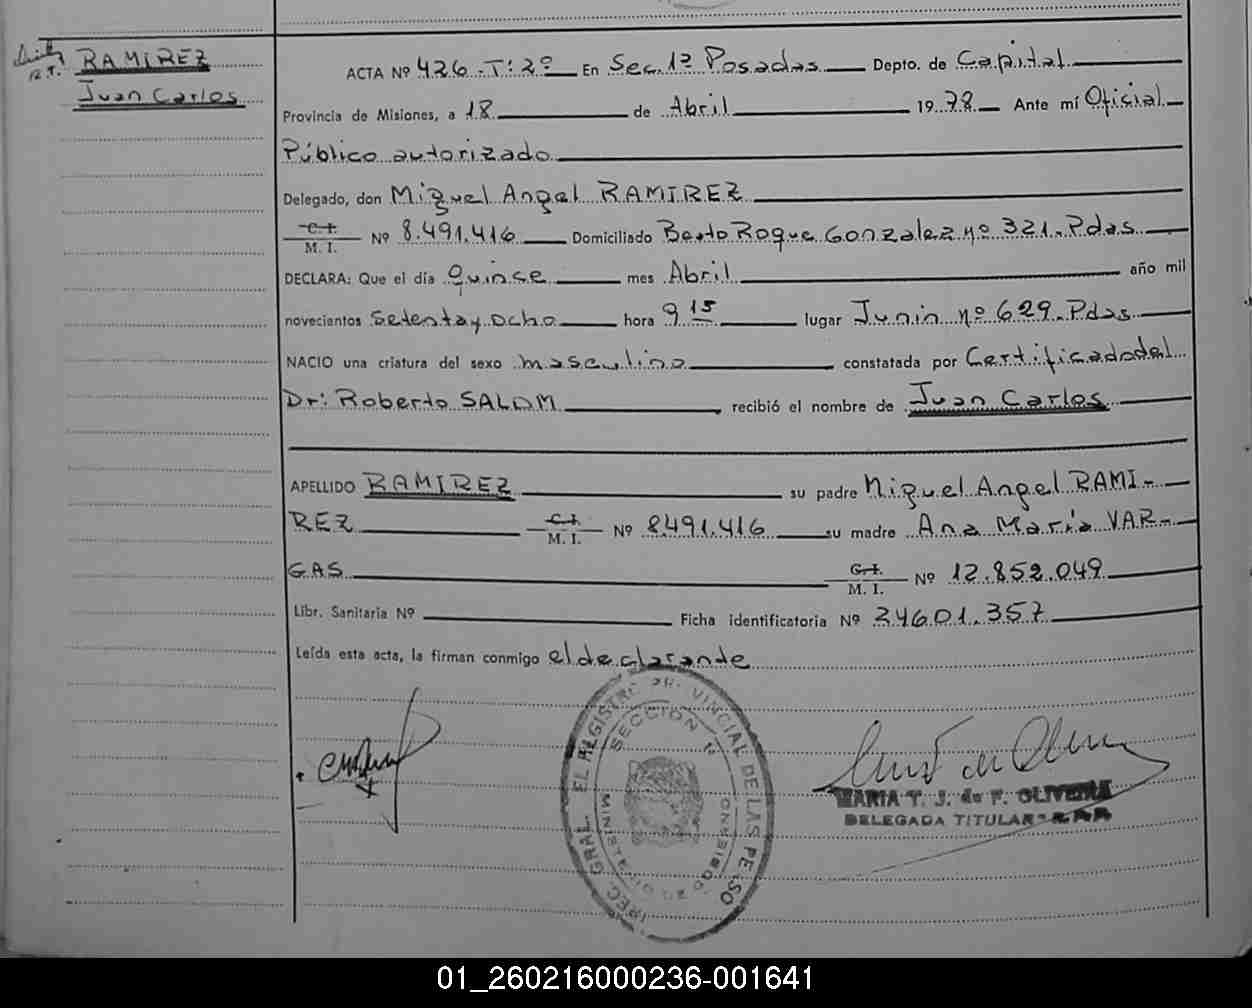 RAMIREZ
Juan Carlos
ACTA Nº 426 - Tº: 2º En Sec. 1ª Posadas Depto. de Capital
Provincia de Misiones, a 18 de Abril 1978 Ante mí Oficial
Público autorizado
Delegado, don Miguel Angel RAMIREZ
C. I.
M. I. Nº 8.491.416 Domiciliado Beato Roque Gonzalez nº 321 - Pdas
DECLARA: Que el día Quinse mes Abril año mil
novecientos Setentayocho hora 9 15 lugar Junin nº 629 - Pdas
NACIO una criatura del sexo masculino constatada por Certificadodel
Dr: Roberto SALOM recibió el nombre de Juan Carlos
APELLIDO RAMIREZ su padre Miguel Angel RAMI-
REZ C. I. M. I. Nº 8.491.416 su madre Ana María VAR-
GAS C. I. M. I. Nº 12.852.049
Libr. Sanitaria Nº Ficha identificatoria Nº 24601.357
Leída esta acta, la firman conmigo eldeclarante
SECCION 1ª
MARIA T. J. de F. OLIVEIRA
DELEGADA TITULAR
01_260216000236-001641